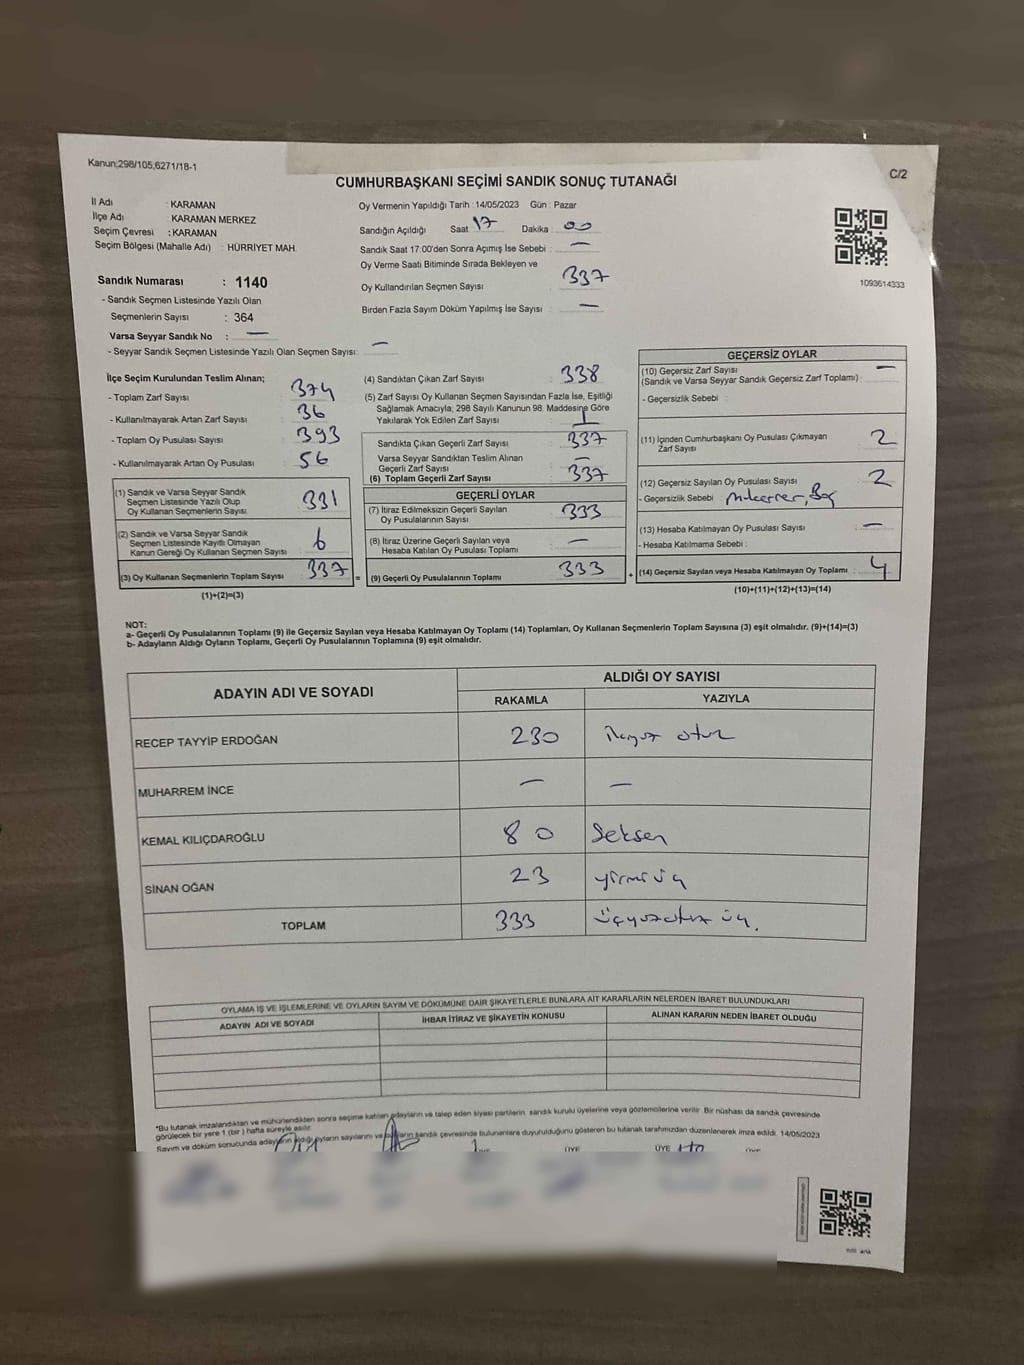 Kanun:298/105;6271/18-1
C/2
CUMHURBAŞKANI SEÇİMİ SANDIK SONUÇ TUTANAĞI
İl Adı : KARAMAN
İlçe Adı : KARAMAN MERKEZ
Seçim Çevresi : KARAMAN
Seçim Bölgesi (Mahalle Adı) : HÜRRİYET MAH.
Sandık Numarası : 1140
- Sandık Seçmen Listesinde Yazılı Olan
Seçmenlerin Sayısı : 364
Varsa Seyyar Sandık No : —
- Seyyar Sandık Seçmen Listesinde Yazılı Olan Seçmen Sayısı: —
Oy Vermenin Yapıldığı Tarih : 14/05/2023 Gün : Pazar
Sandığın Açıldığı Saat 17 Dakika : 00
Sandık Saat 17:00'den Sonra Açımış İse Sebebi : —
Oy Verme Saati Bitiminde Sırada Bekleyen ve
Oy Kullandırılan Seçmen Sayısı : 337
Birden Fazla Sayım Döküm Yapılmış İse Sayısı : —
1093614333
İlçe Seçim Kurulundan Teslim Alınan;
- Toplam Zarf Sayısı : 374
- Kullanılmayarak Artan Zarf Sayısı : 36
- Toplam Oy Pusulası Sayısı : 393
- Kullanılmayarak Artan Oy Pusulası : 56
(1) Sandık ve Varsa Seyyar Sandık
Seçmen Listesinde Yazılı Olup
Oy Kullanan Seçmenlerin Sayısı : 331
(2) Sandık ve Varsa Seyyar Sandık
Seçmen Listesinde Kayıtlı Olmayan
Kanun Gereği Oy Kullanan Seçmen Sayısı : 6
(3) Oy Kullanan Seçmenlerin Toplam Sayısı : 337
(1)+(2)=(3)
(4) Sandıktan Çıkan Zarf Sayısı : 338
(5) Zarf Sayısı Oy Kullanan Seçmen Sayısından Fazla İse, Eşitliği
Sağlamak Amacıyla, 298 Sayılı Kanunun 98. Maddesine Göre
Yakılarak Yok Edilen Zarf Sayısı : 1
Sandıkta Çıkan Geçerli Zarf Sayısı : 337
Varsa Seyyar Sandıktan Teslim Alınan
Geçerli Zarf Sayısı : —
(6) Toplam Geçerli Zarf Sayısı : 337
GEÇERLİ OYLAR
(7) İtiraz Edilmeksizin Geçerli Sayılan
Oy Pusulalarının Sayısı : 333
(8) İtiraz Üzerine Geçerli Sayılan veya
Hesaba Katılan Oy Pusulası Toplamı : —
= (9) Geçerli Oy Pusulalarının Toplamı : 333
GEÇERSİZ OYLAR
(10) Geçersiz Zarf Sayısı : —
(Sandık ve Varsa Seyyar Sandık Geçersiz Zarf Toplamı) :
- Geçersizlik Sebebi :
(11) İçinden Cumhurbaşkanı Oy Pusulası Çıkmayan
Zarf Sayısı : 2
(12) Geçersiz Sayılan Oy Pusulası Sayısı : 2
- Geçersizlik Sebebi : mükerrer, Boş
(13) Hesaba Katılmayan Oy Pusulası Sayısı : —
- Hesaba Katılmama Sebebi :
+ (14) Geçersiz Sayılan veya Hesaba Katılmayan Oy Toplamı : 4
(10)+(11)+(12)+(13)=(14)
NOT:
a- Geçerli Oy Pusulalarının Toplamı (9) ile Geçersiz Sayılan veya Hesaba Katılmayan Oy Toplamı (14) Toplamları, Oy Kullanan Seçmenlerin Toplam Sayısına (3) eşit olmalıdır. (9)+(14)=(3)
b- Adayların Aldığı Oyların Toplamı, Geçerli Oy Pusulalarının Toplamına (9) eşit olmalıdır.
ADAYIN ADI VE SOYADI
ALDIĞI OY SAYISI
RAKAMLA YAZIYLA
RECEP TAYYİP ERDOĞAN 230 ikiyüz otuz
MUHARREM İNCE — —
KEMAL KILIÇDAROĞLU 80 Seksen
SİNAN OĞAN 23 yirmi üç
TOPLAM 333 üçyüzotuz üç.
OYLAMA İŞ VE İŞLEMLERİNE VE OYLARIN SAYIM VE DÖKÜMÜNE DAİR ŞİKAYETLERLE BUNLARA AİT KARARLARIN NELERDEN İBARET BULUNDUKLARI
ADAYIN ADI VE SOYADI İHBAR İTİRAZ VE ŞİKAYETİN KONUSU ALINAN KARARIN NEDEN İBARET OLDUĞU
*Bu tutanak imzalandıktan ve mühürlendikten sonra seçime katılan adayların ve talep eden siyasi partilerin sandık kurulu üyelerine veya gözlemcilerine verilir. Bir nüshası da sandık çevresinde
görülecek bir yere 1 (bir) hafta süreyle asılır.
Sayım ve döküm sonucunda adayların aldığı oyların sayılarını ve bunların sandık çevresinde bulunanlara duyurulduğunu gösteren bu tutanak tarafımızdan düzenlenerek imza edildi. 14/05/2023
ÜYE ÜYE